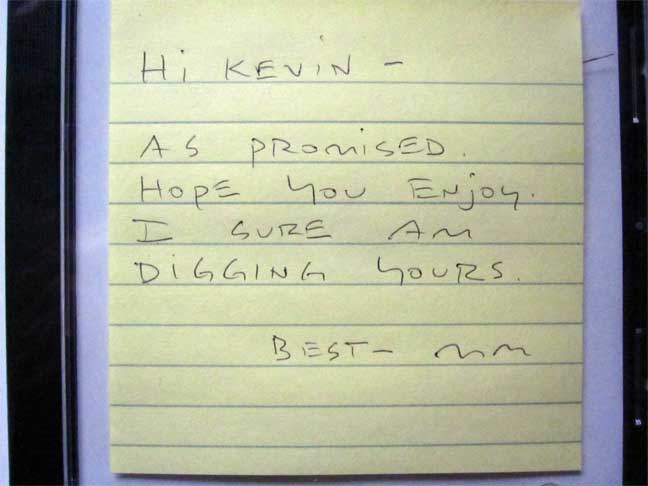 Hi KEVIN -
AS PROMISED.
HOPE YOU ENJOY.
I SURE AM
DIGGING YOURS.
BEST - MM